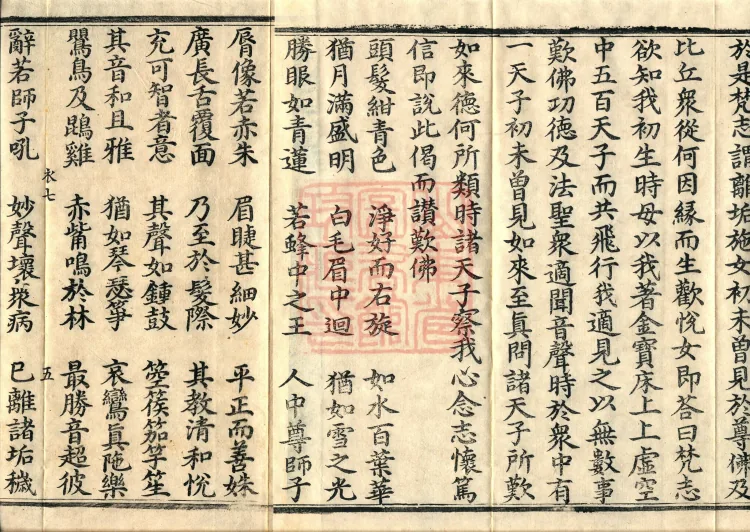 於是梵志謂離垢施女初未曾見於尊佛及
比丘衆從何因緣而生歡悅女即答曰梵志
欲知我初生時母以我著金寶床上上虛空
中五百天子而共飛行我適見之以無數事
歎佛功德及法聖衆適聞音聲時於衆中有
一天子初未曾見如來至真問諸天子所歎
如來德何所類時諸天子察我心念志懷篤
信即說此偈而讃歎佛
頭髮紺青色 淨好而右旋 如水百葉華
猶月滿盛明 白毛眉中迴 猶如雪之光
勝眼如青蓮 若蜂中之王 人中尊師子
脣像若赤朱 眉睫甚細妙 平正而善姝
廣長舌覆面 乃至於髮際 其教清和悅
充可智者意 其聲如鍾鼓 箜篌笳竽笙
其音和且雅 猶如琴瑟箏 哀鸞真陁樂
鸎鳥及鵾雞 赤觜鳴於林 最勝音超彼
衣七 五
辭若師子吼 妙聲壞衆病 已離諸垢穢